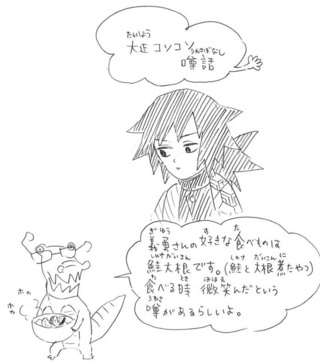 たいしょう
大正コソコソ
うわさばなし
噂話
ぎゆう す た
義勇さんの好きな食べものは
しゃけだいこん しゃけ だいこん に
鮭大根です。(鮭と大根煮たやつ)
た とき ほほえ
食べる時 微笑んだという
うわさ
噂があるらしいよ。
ホカ
ホカ